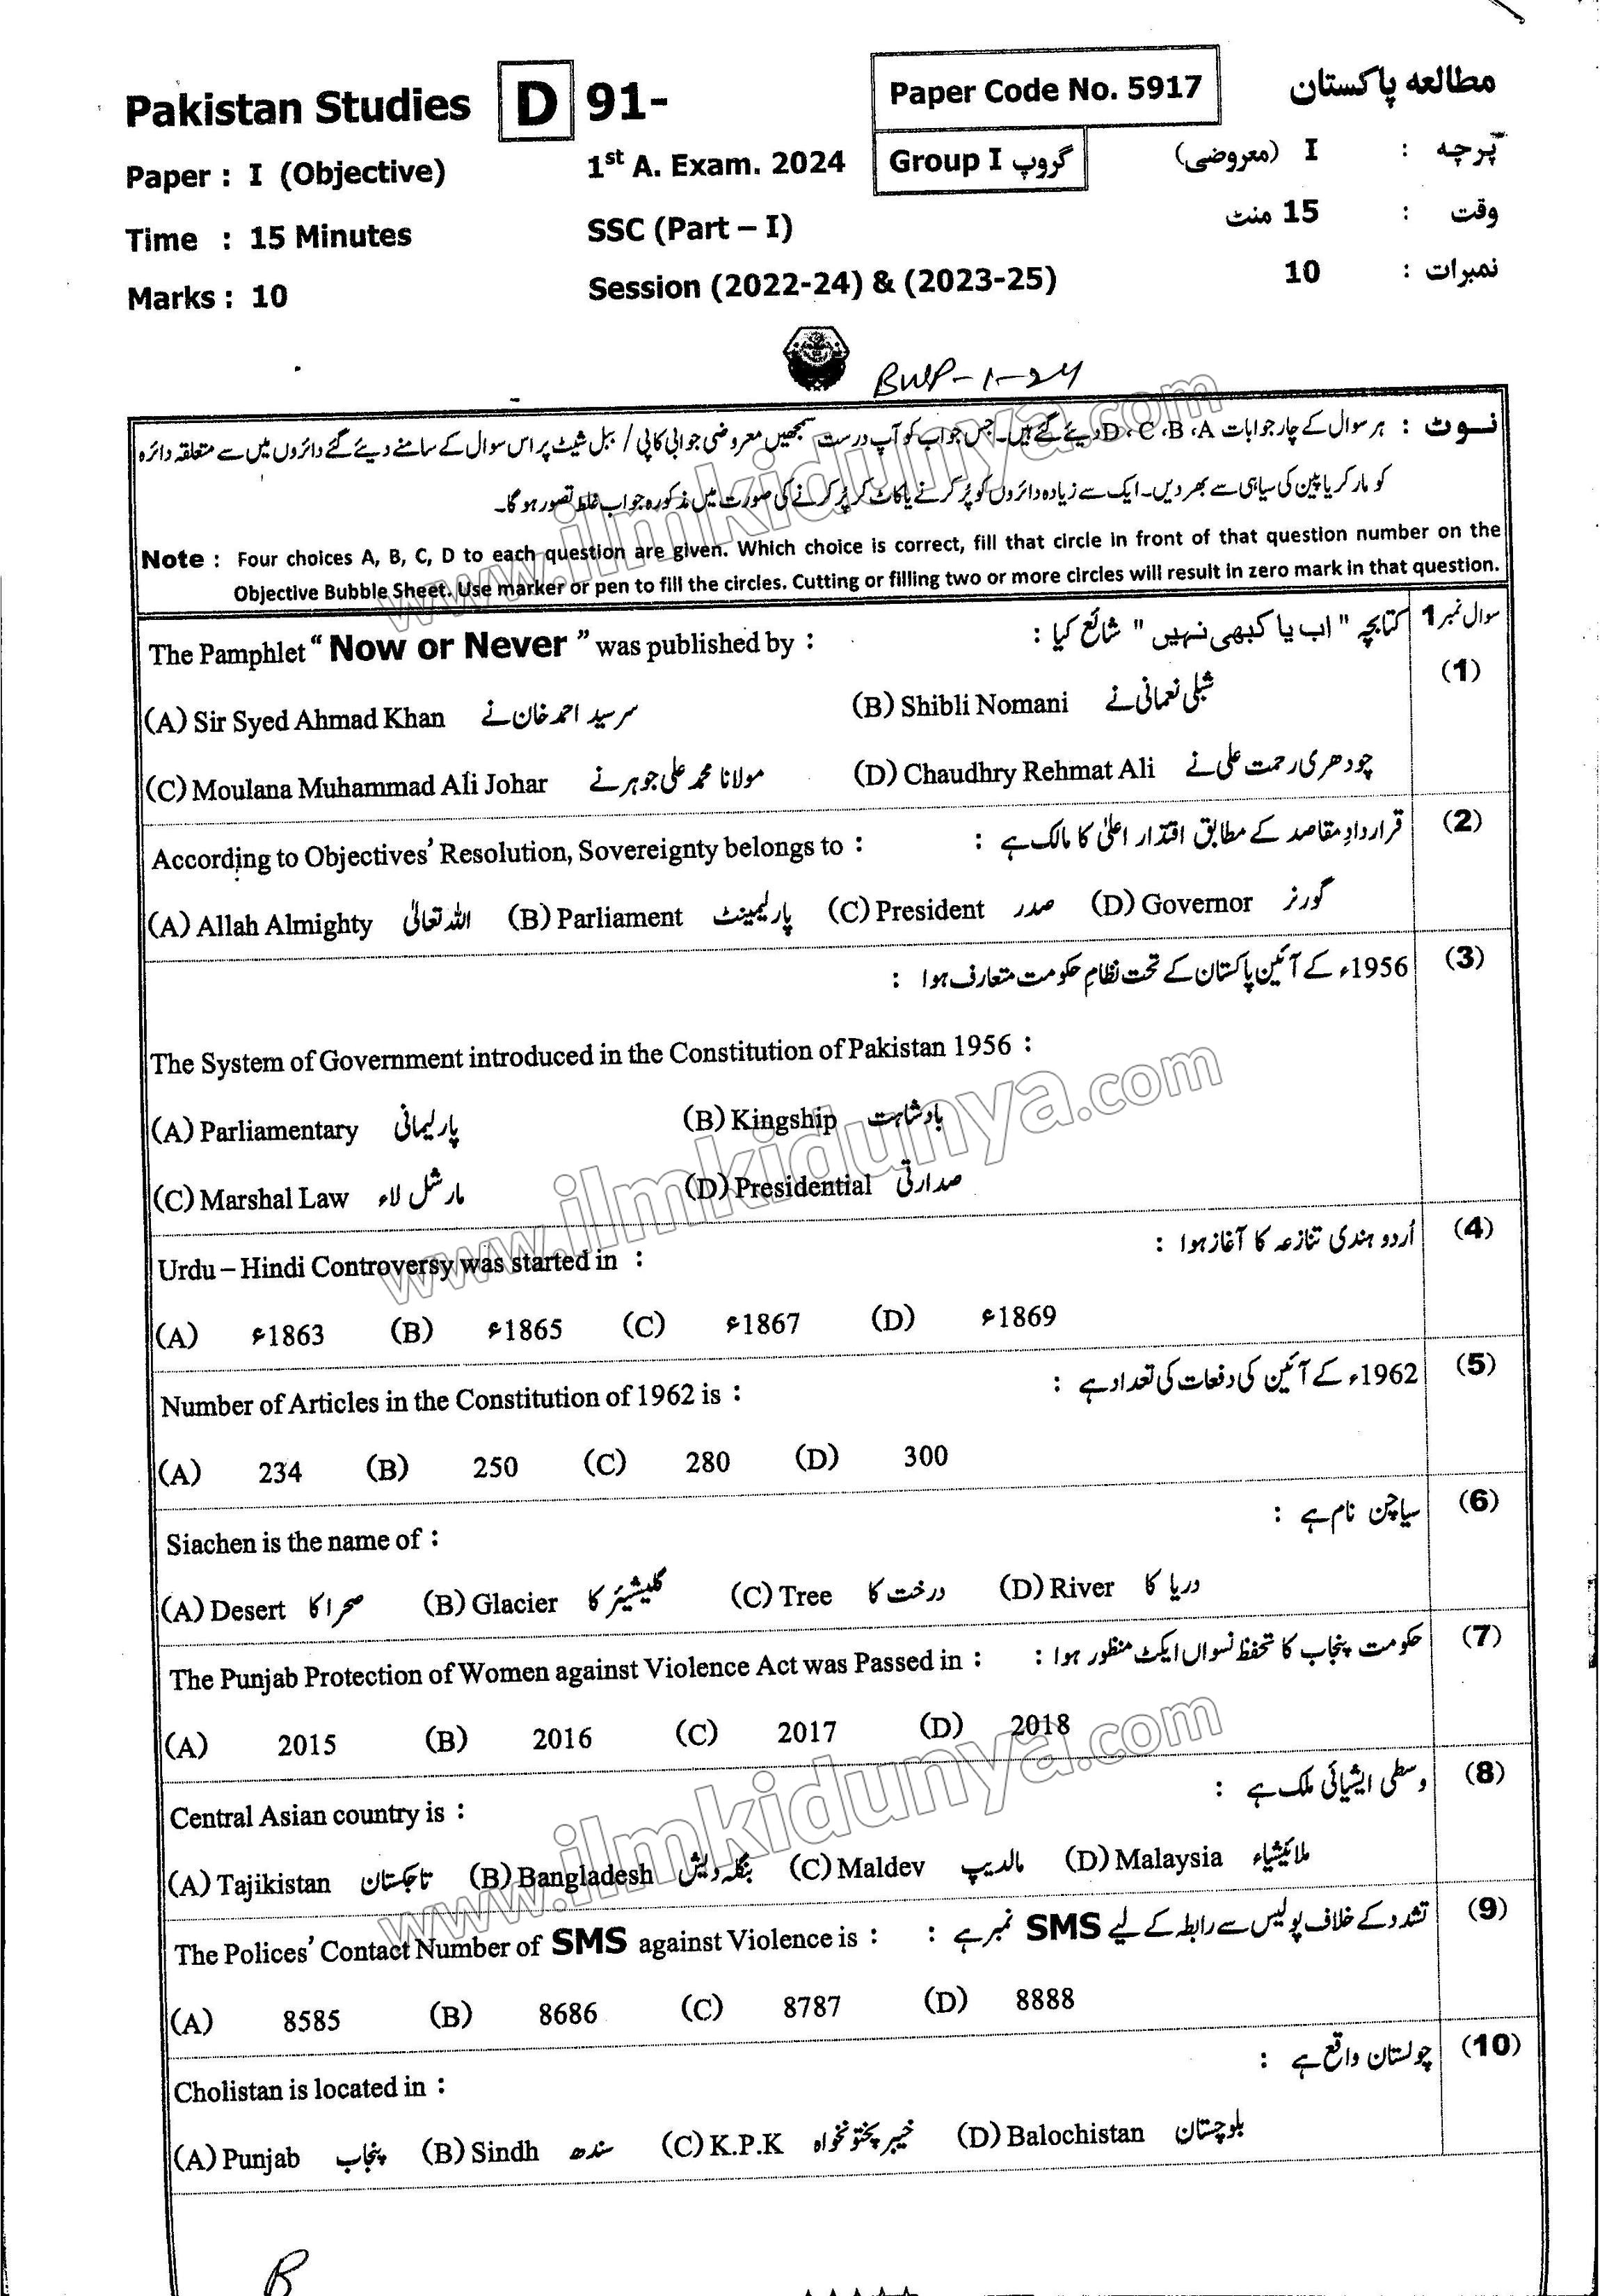 Pakistan Studies D 91- Paper Code No. 5917 مطالعہ پاکستان
Paper : I (Objective) 1st A. Exam. 2024 Group I گروپ پرچہ : I (معروضی)
Time : 15 Minutes SSC (Part – I) وقت : 15 منٹ
Marks : 10 Session (2022-24) & (2023-25) نمبرات : 10
BWP-1-24
نوٹ : ہر سوال کے چار جوابات A، B، C، D دیئے گئے ہیں۔ جس جواب کو آپ درست سمجھیں معروضی جوابی کاپی / ببل شیٹ پر اس سوال کے سامنے دیئے گئے دائروں میں سے متعلقہ دائرہ
کو مارکر یا پین کی سیاہی سے بھر دیں۔ ایک سے زیادہ دائروں کو پُر کرنے یا کاٹ کر پُر کرنے کی صورت میں مذکورہ جواب غلط تصور ہو گا۔
Note : Four choices A, B, C, D to each question are given. Which choice is correct, fill that circle in front of that question number on the
Objective Bubble Sheet. Use marker or pen to fill the circles. Cutting or filling two or more circles will result in zero mark in that question.
سوال نمبر 1
The Pamphlet “ Now or Never ” was published by : کتابچہ " اب یا کبھی نہیں " شائع کیا : (1)
(A) Sir Syed Ahmad Khan سر سید احمد خان نے (B) Shibli Nomani شبلی نعمانی نے
(C) Moulana Muhammad Ali Johar مولانا محمد علی جوہر نے (D) Chaudhry Rehmat Ali چودھری رحمت علی نے
According to Objectives’ Resolution, Sovereignty belongs to : قرار دادِ مقاصد کے مطابق اقتدار اعلیٰ کا مالک ہے : (2)
(A) Allah Almighty اللہ تعالیٰ (B) Parliament پارلیمینٹ (C) President صدر (D) Governor گورنر
1956ء کے آئین پاکستان کے تحت نظامِ حکومت متعارف ہوا : (3)
The System of Government introduced in the Constitution of Pakistan 1956 :
(A) Parliamentary پارلیمانی (B) Kingship بادشاہت
(C) Marshal Law مارشل لاء (D) Presidential صدارتی
Urdu – Hindi Controversy was started in : اُردو ہندی تنازعہ کا آغاز ہوا : (4)
(A) 1863ء (B) 1865ء (C) 1867ء (D) 1869ء
Number of Articles in the Constitution of 1962 is : 1962ء کے آئین کی دفعات کی تعداد ہے : (5)
(A) 234 (B) 250 (C) 280 (D) 300
Siachen is the name of : سیاچن نام ہے : (6)
(A) Desert صحرا کا (B) Glacier گلیشیئر کا (C) Tree درخت کا (D) River دریا کا
The Punjab Protection of Women against Violence Act was Passed in : حکومت پنجاب کا تحفظ نسواں ایکٹ منظور ہوا : (7)
(A) 2015 (B) 2016 (C) 2017 (D) 2018
Central Asian country is : وسطی ایشیائی ملک ہے : (8)
(A) Tajikistan تاجکستان (B) Bangladesh بنگلہ دیش (C) Maldev مالدیپ (D) Malaysia ملائیشیاء
The Polices’ Contact Number of SMS against Violence is : تشدد کے خلاف پولیس سے رابطہ کے لیے SMS نمبر ہے : (9)
(A) 8585 (B) 8686 (C) 8787 (D) 8888
Cholistan is located in : چولستان واقع ہے : (10)
(A) Punjab پنجاب (B) Sindh سندھ (C) K.P.K خیبر پختونخواہ (D) Balochistan بلوچستان
B
www.ilmkidunya.com
www.ilmkidunya.com
www.ilmkidunya.com